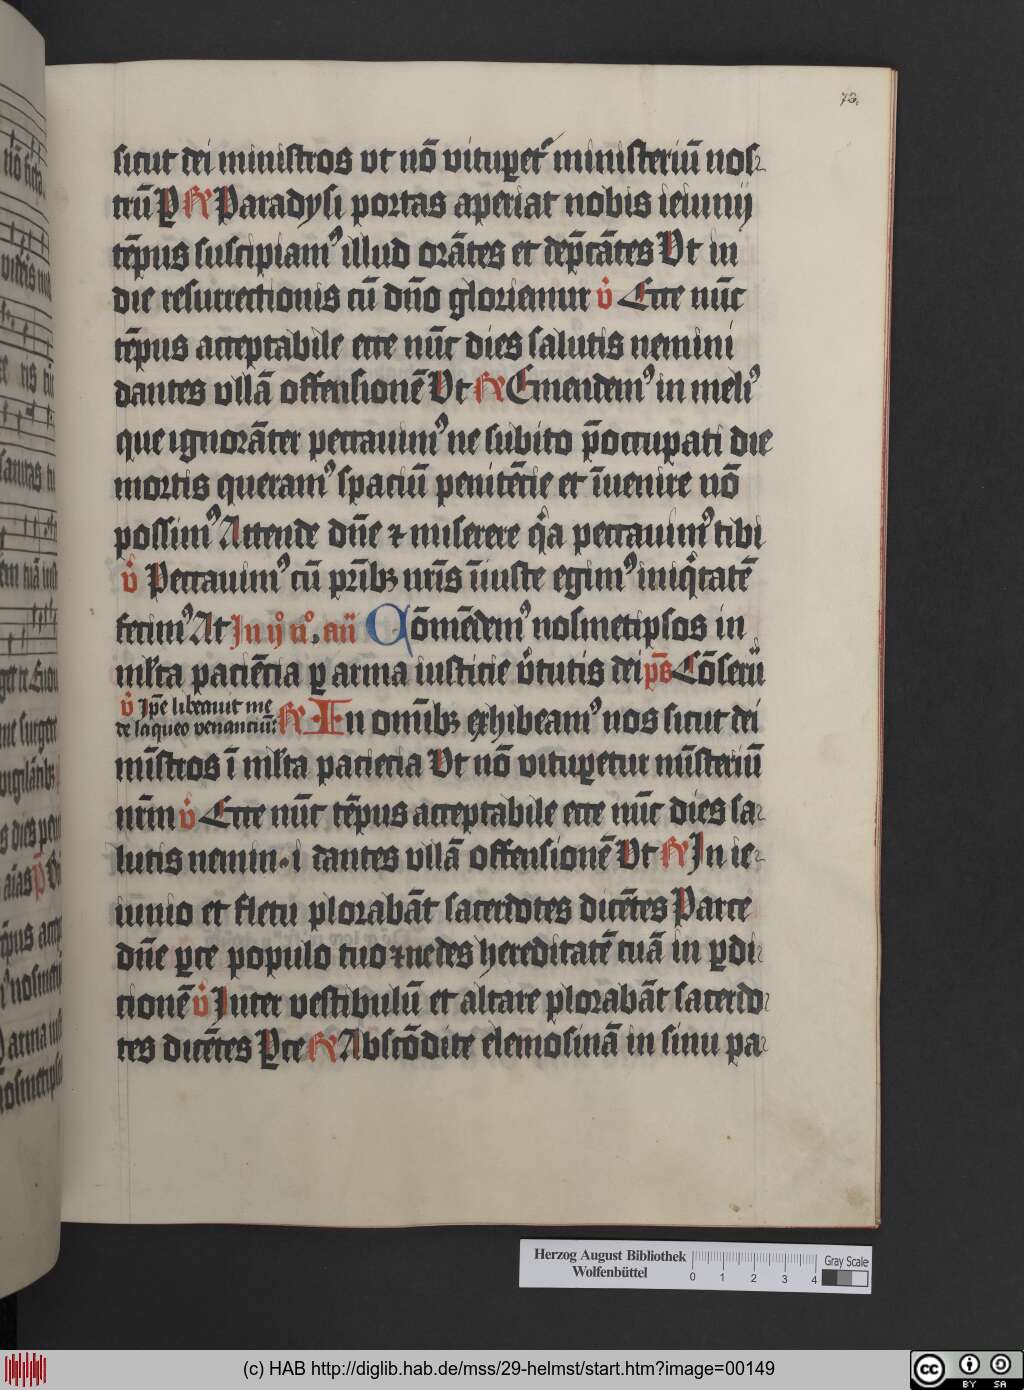 73.
sicut dei ministros vt nō vituꝑet᷑ ministeriū nos-
trū P ℟ Paradysi portas aperiat nobis ieiunij
tēpus suscipiamꝰ illud orātes et dep̄cātes Vt in
die resurrectionis cū dn̄o gloriemur v̇ Ecce nūc
tēpus acceptabile ecce nūc dies salutis nemini
dantes vllā offensionē Vt ℟ Emendemꝰ in meliꝰ
que ignorāter peccauimꝰ ne subito p̄occupati die
mortis queramꝰ spaciū penitēcie et īuenire nō
possimꝰ Attende dn̄e ⁊ miserere qͥa peccauimꝰ tibi
v̇ Peccauimꝰ cū pr̄ibꝫ nr̄is īiuste egimꝰ iniqͥtatē
fecimꝰ At In ijͦ nͦ. an̄ Cōmēdemꝰ nosmetipsos in
ml̄ta paciēcia ꝑ arma iusticie v̓tutis dei ps̄ Cōserū
v̇ Ip̄e liberauit me
de laqueo venanciū:
℟ In om̄ibꝫ exhibeamꝰ nos sicut dei
mīstros ī ml̄ta paciecia Vt nō vituꝑetur mīsteriū
nr̄m v̇ Ecce nūc tēpus acceptabile ecce nūc dies sa-
lutis nemin-i dantes vllā offensionē Vt ℟ In ie-
iunio et fletu plorabāt sacerdotes dicētes Parce
dn̄e ꝑce populo tuo ⁊ ne des hereditatē tuā in ꝑdi-
cionē v̇ Inter vestibulū et altare plorabāt sacerdo-
tes dicētes Ꝑce ℟ Abscōdite elemosinā in sinu pa-
Herzog August Bibliothek
Wolfenbüttel
0 1 2 3 4
Gray Scale
(c) HAB http://diglib.hab.de/mss/29-helmst/start.htm?image=00149
cc BY SA